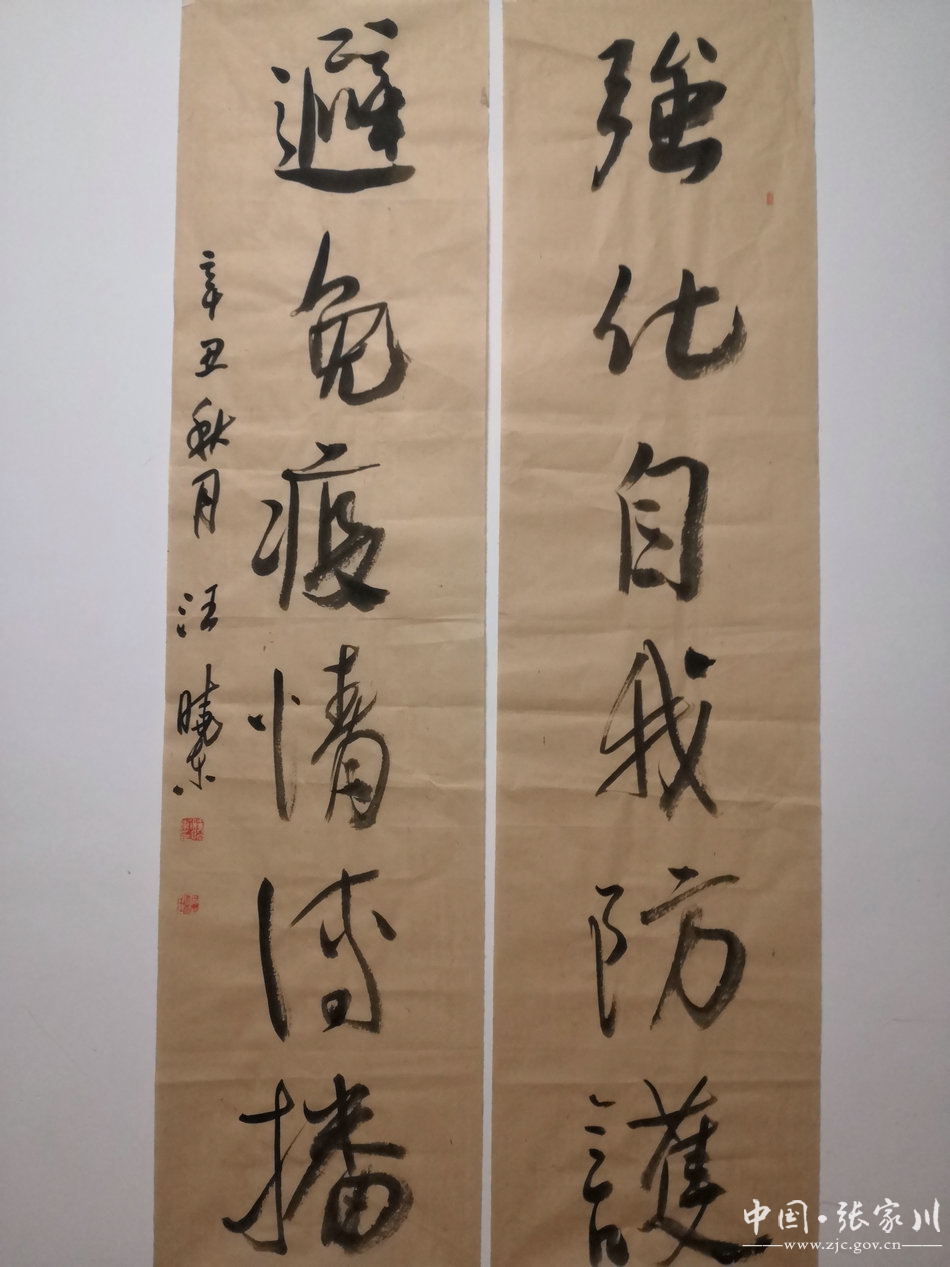 強化自我防護
避免疫情傳播
辛丑秋月 汪曉東
中国·张家川
www.zjc.gov.cn